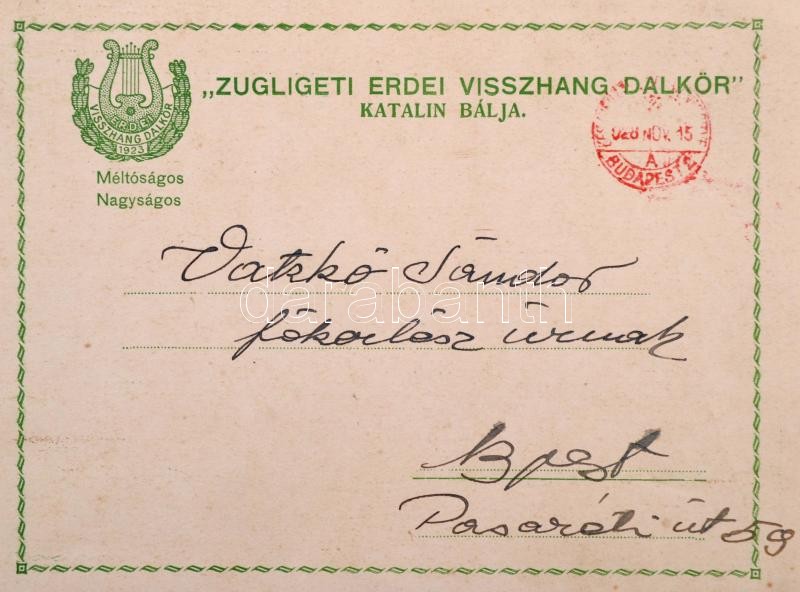 „ZUGLIGETI ERDEI VISSZHANG DALKÖR"
KATALIN BÁLJA.
ERDEI
VISSZHANG DALKÖR
1923
928 NOV. 15
A
BUDAPEST
Méltóságos
Nagyságos
Vatzkó Sándor
darabanth
úrnak
Bpest
Pasaréti út 59